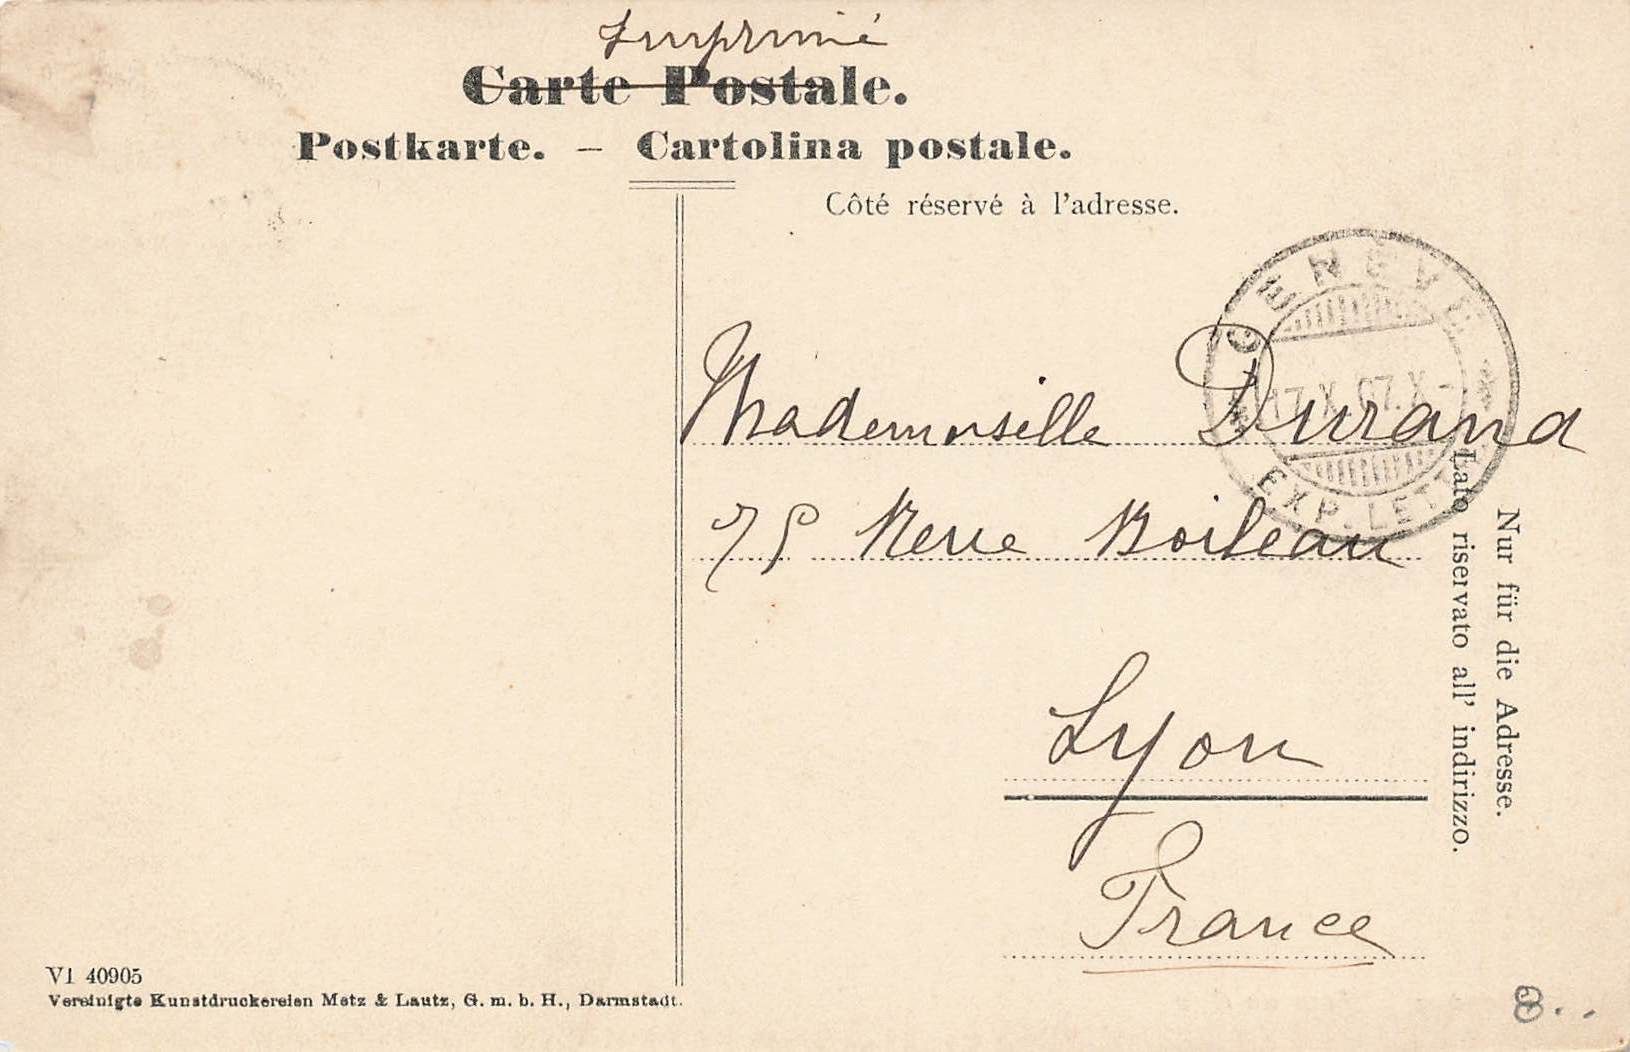 Imprimé
Carte Postale.
Postkarte. – Cartolina postale.
Côté réservé à l'adresse.
GENÈVE
17.X.07.X-
EXP. LETT.
Mademoiselle Durand
75 Rue Boileau
Lyon
France
Lato riservato all' indirizzo.
Nur für die Adresse.
VI 40905
Vereinigte Kunstdruckereien Metz & Lautz, G. m. b. H., Darmstadt.
8..